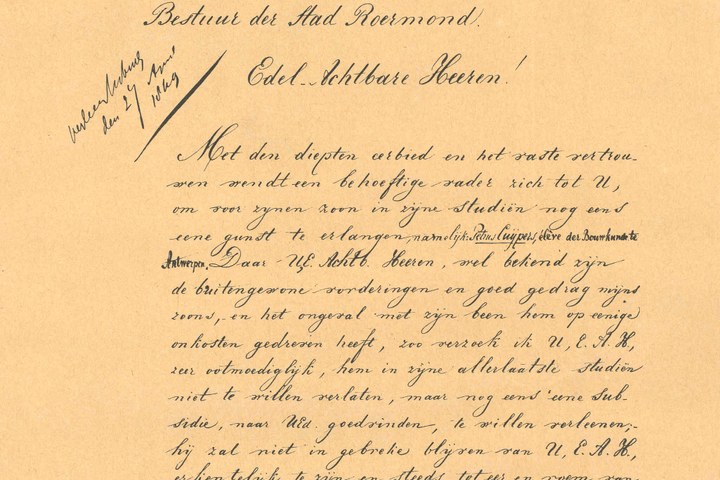 Bestuur der Stad Roermond.
den 27 April
1849
Edel-Achtbare Heeren!
Met den diepten eerbied en het vaste vertrou-
wen wendt een behoeftige vader zich tot U,
om voor zynen zoon in zijne studiën nog eens
eene gunst te erlangen, namelijk: Petrus Cuijpers, élève der Bouwkunde te
Antwerpen. Daar U.E. Achtb. Heeren, wel bekend zijn
de buitengewone vorderingen en goed gedrag mijns
zoons, en het ongeval met zijn been hem op eenige
onkosten gedreven heeft, zoo verzoek ik U, E. A. H,
zeer ootmoediglijk, hem in zijne allerlaatste studiën
niet te willen verlaten, maar nog eens eene Sub-
sidie, naar Ued. goedvinden, te willen verleenen;-
hij zal niet in gebreke blijven van U, E. A. H.,
erkentelijk te zijn en steeds tot eer en roem van